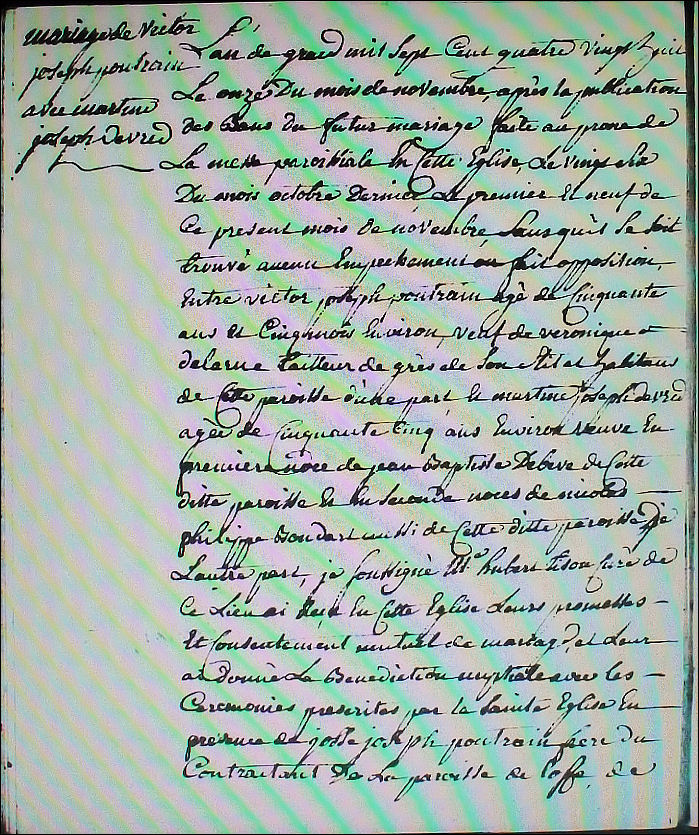 mariage de Victor
joseph poutrain
avec martine
joseph Devred
L'an de grace mil Sept Cent quatre vingt huit
Le onze Du mois de novembre, après la publication
des Bans du futur mariage faite au prone de
La messe paroissiale En Cette Eglise, Le vingt six
Du mois octobre Dernier, Le premier Et neuf de
Ce present mois de novembre Sans qu'es Se soit
trouvé aucun Empechement ou fait opposition,
Entre victor joseph poutrain agé de Cinquante
ans et Cinq mois Environ, veuf de veronique
delarue tailleur de grès de Son Stil et habitans
de Cette paroisse d'une part Et martine joseph devred
agée de Cinquante Cinq ans Environ veuve En
premiere noce de jean Baptiste Debeve de Cette
ditte paroisse Et En Seconde noces de nicolas
philippe Bondart aussi de Cette ditte paroisse De
L'autre part, je soussigné Mre hubert tison Curé de
Ce Lieu ai Reçu En Cette Eglise Leurs promesses
Et Consentement mutuel de mariage, et Leur
ai donné La Benediction nuptiale avec les
Ceremonies prescrites par la Sainte Eglise En
presence de josse joseph poutrain frere Du
Contractant De La paroisse de Coffe, de